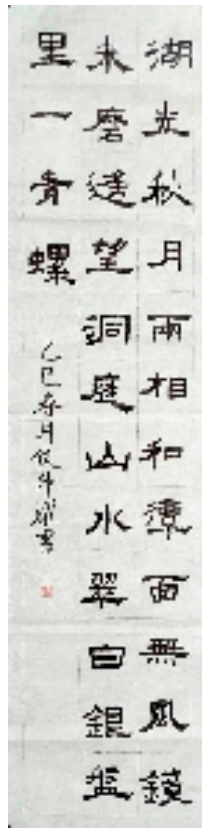 湖光秋月兩相和潭面無風鏡
未磨遥望洞庭山水翠白銀盤
里一青螺
乙巳春月